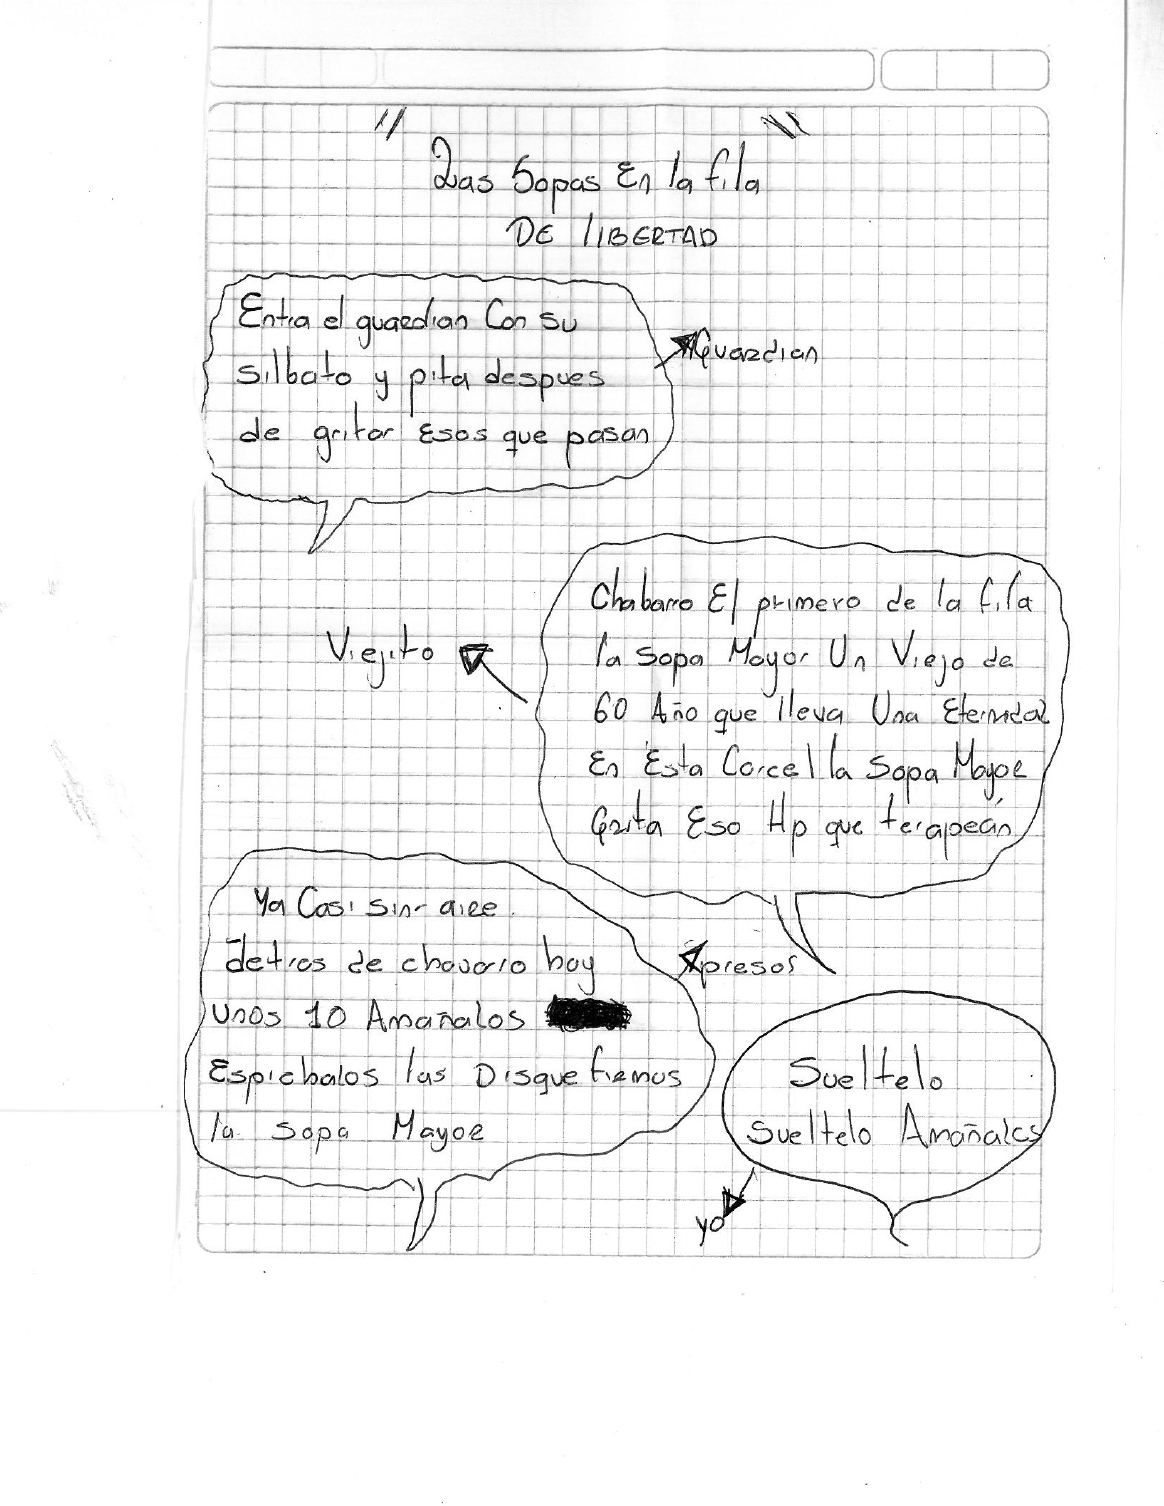 "Las Sopas En la fila"
DE lIBERTAD
Entra el guardian Con su
silbato y pita despues
de gritar Esos que pasan
Guardian
Chabarro El primero de la fila
la sopa Mayor Un Viejo de
60 Año que lleva Una Eternidal
En Esta Carcel la Sopa Mayor
Grita Eso Hp que terapean
Viejito
Ya Casi sin aire
detras de chavario hay
unos 10 Amañalos
Espichalos las Disquetiemos
la sopa Mayor
presos
Sueltelo
sueltelo Amañalos
yo